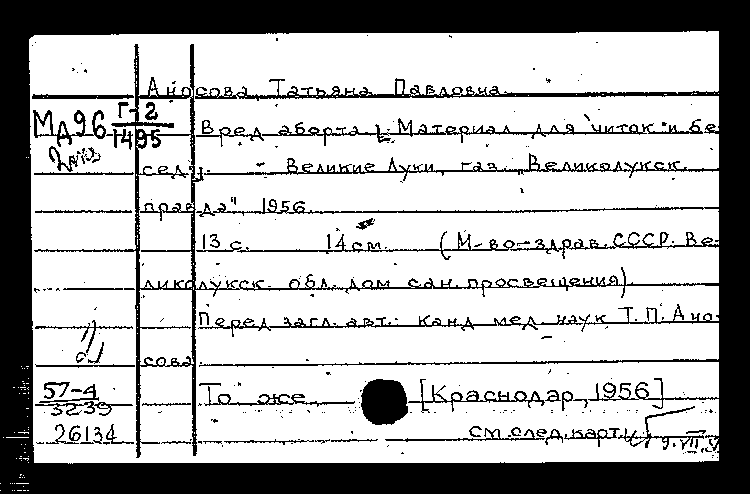 Аносова, Татьяна Павловна.
МД96 Г-2
1495
Вред аборта [: Материал для читок и бе-
сед]. - Великие Луки, газ. "Великолукск.
правда", 1956.
13 с. 14 см. (М-во здрав. СССР. Ве-
ликолукск. обл. дом сан. просвещения).
Перед загл. авт.: канд. мед. наук Т.П. Ано-
сова.
57-4
3239
То же [Краснодар, 1956]
26134
см. след. карт.